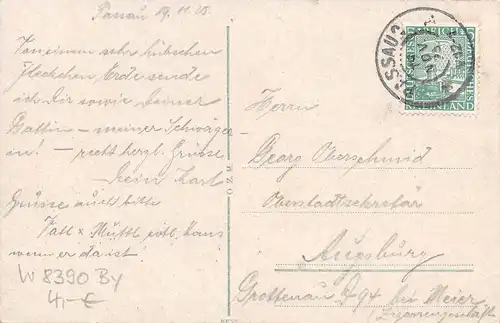 Passau 19.11.25.
Von einem sehr hübschen
Fleckchen Erde sende
ich Dir sowie Deiner
Gattin – meiner Schwäger-
in! – recht herzl. Grüsse
Dein Karl
Grüsse auch bitte
Vatt x Muttl evtl. Hans
wenn er da ist
W 8390 By
4,- €
O.Z.M.
PASSAU 2
DEUTSCHES REICH
5
RHEINLAND
Herrn
Georg Oberschmid
Oberstadtsekretär
Augsburg
Grottenau D 94 bei Meier
Zigarrengeschäft